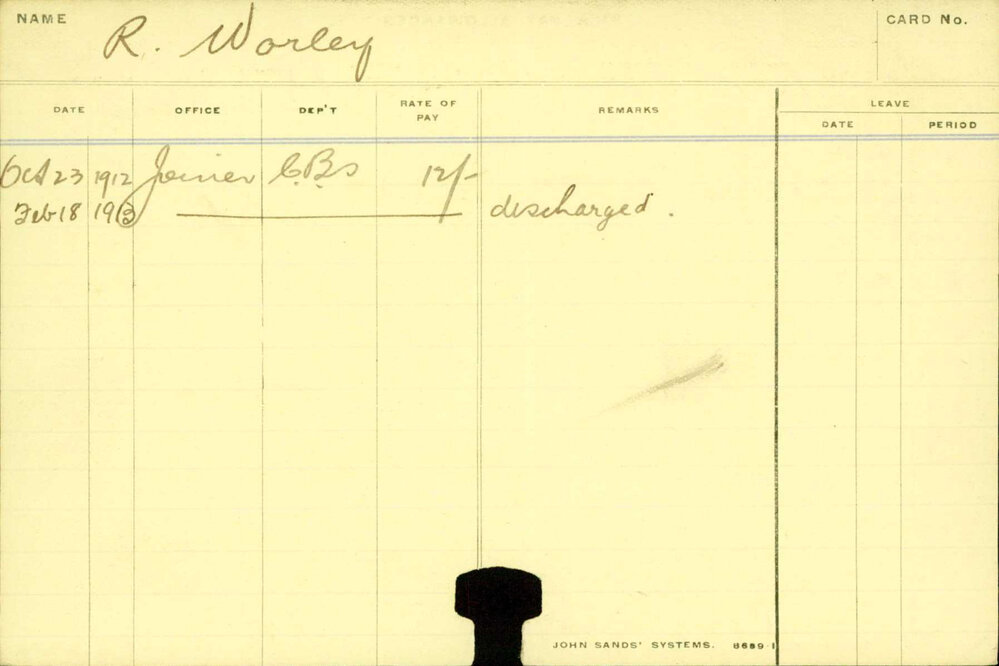 NAME R. Worley CARD No.
DATE OFFICE DEP'T RATE OF PAY REMARKS LEAVE
DATE PERIOD
Oct 23 1912 Joiner C.B.s 12/-
Feb 18 1913 discharged.
JOHN SANDS' SYSTEMS. 8689 1